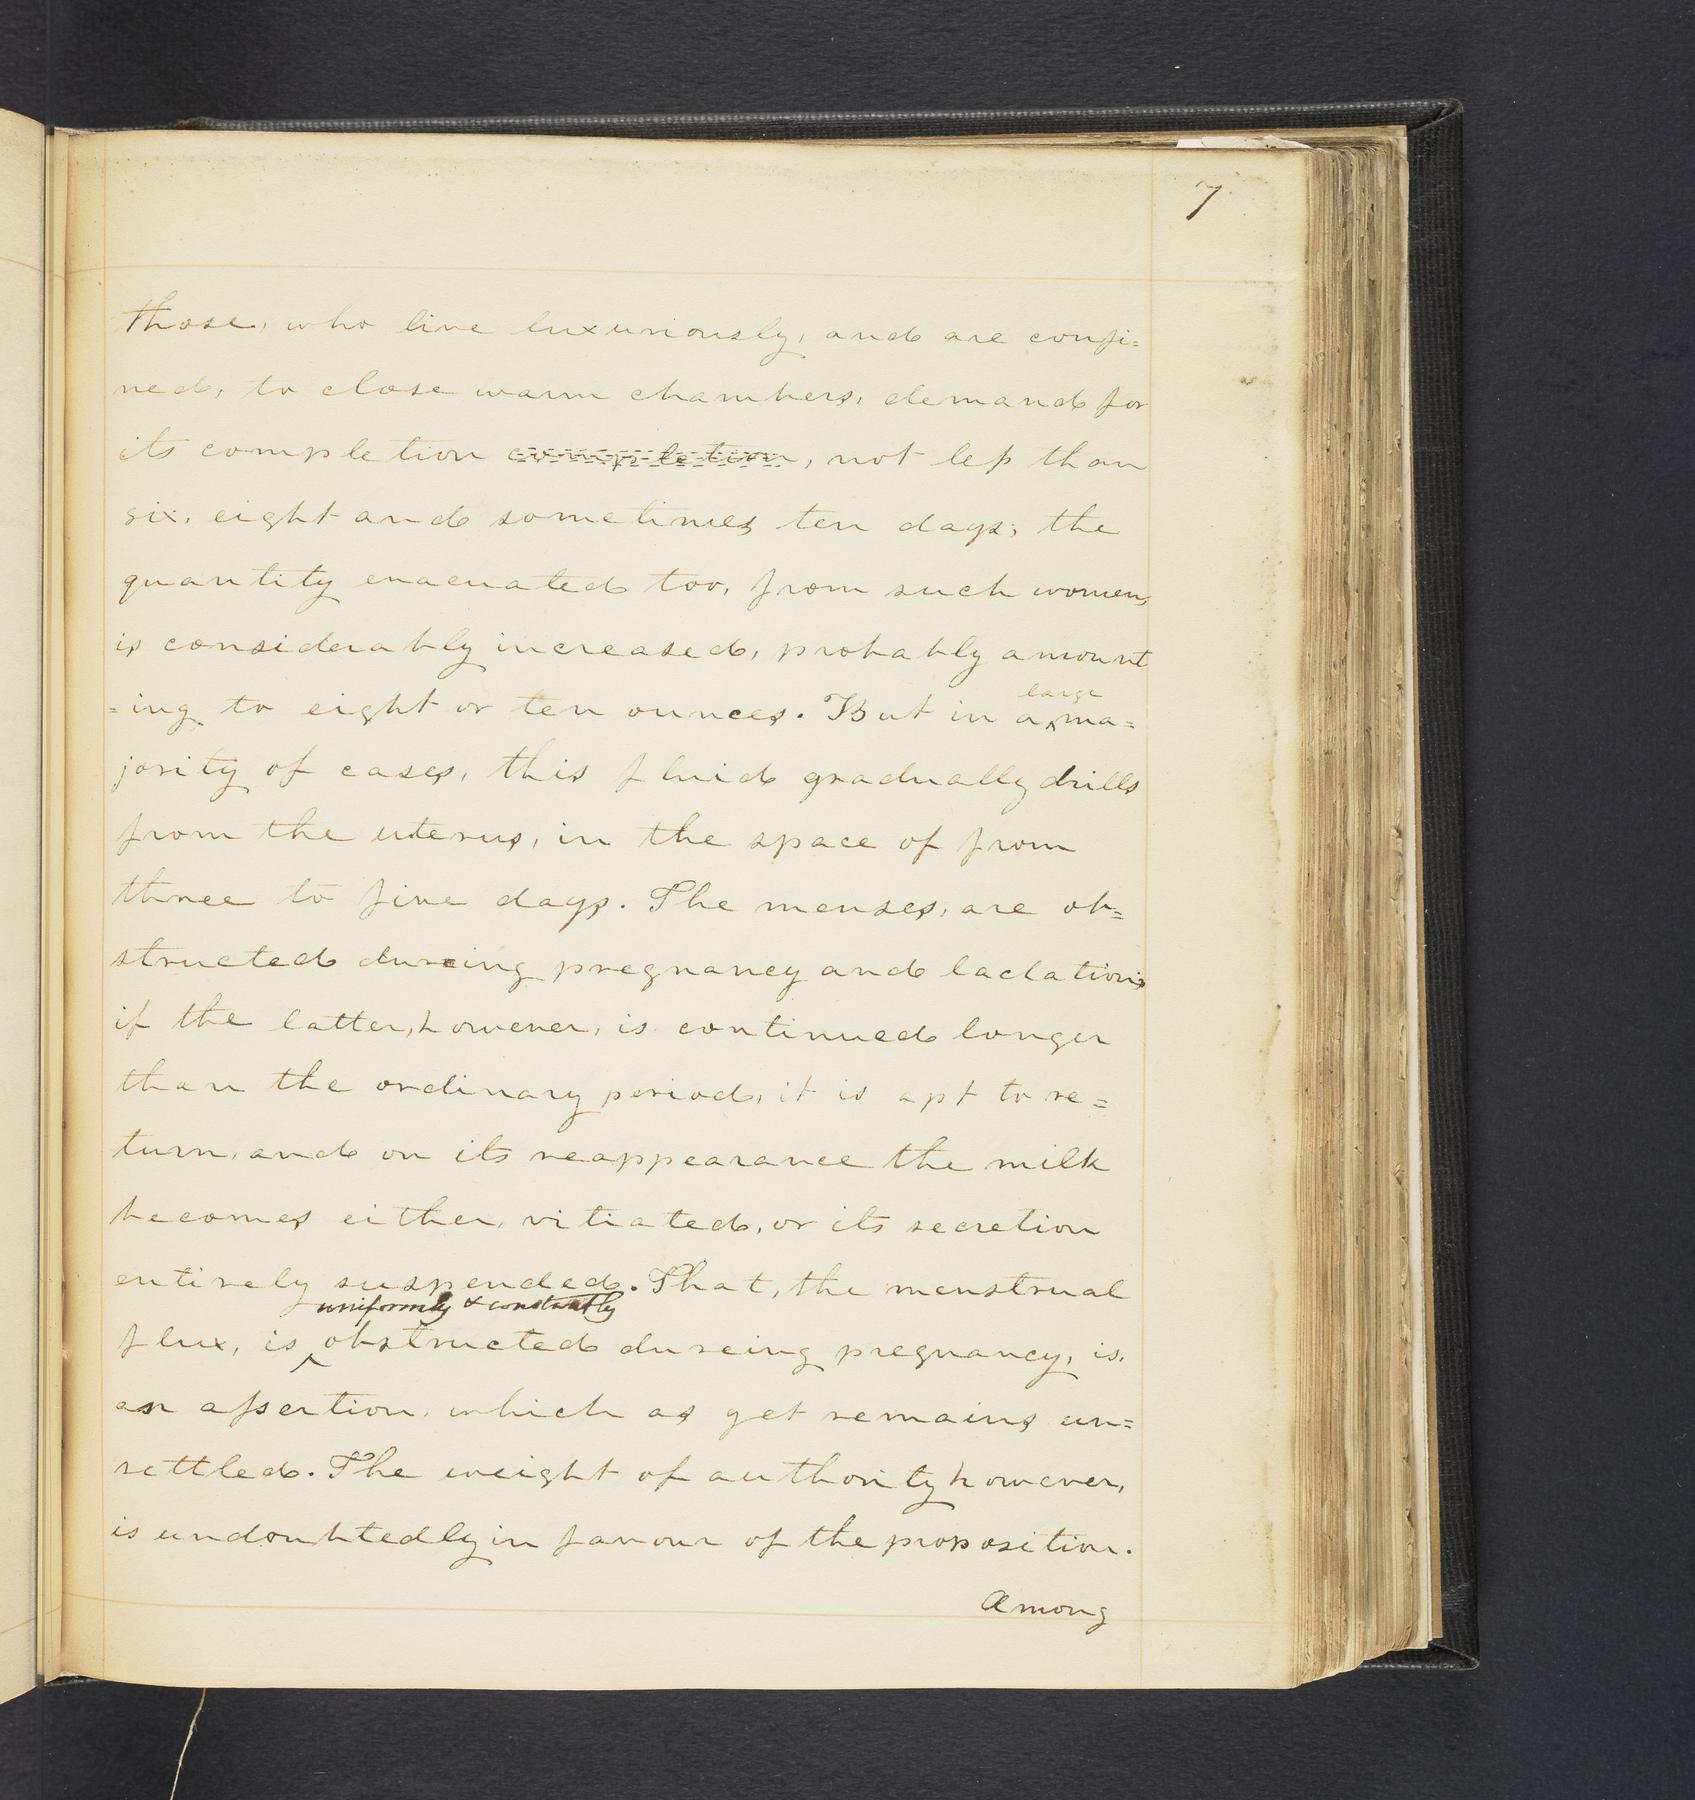 7
those, who live luxuriously, and are confi=
ned, to close warm chambers, demand for
its completion completion, not less than
six, eight and sometimes ten days; the
quantity evacuated too, from such women,
is considerably increased, probably amount
=ing to eight or ten ounces. But in a large ma=
jority of cases, this fluid gradually drills
from the uterus, in the space of from
three to five days. The menses, are ob=
structed dureing pregnancy and lactation;
if the latter, however, is continued longer
than the ordinary period, it is apt to re=
turn, and on its reappearance the milk
becomes either, vitiated, or its secretion
entirely suspended. That, the menstrual
flux, is uniformly & constantly obstructed dureing pregnancy, is,
an assertion, which as yet remains un=
settled. The weight of authority however,
is undoubtedly in favour of the proposition.
Among